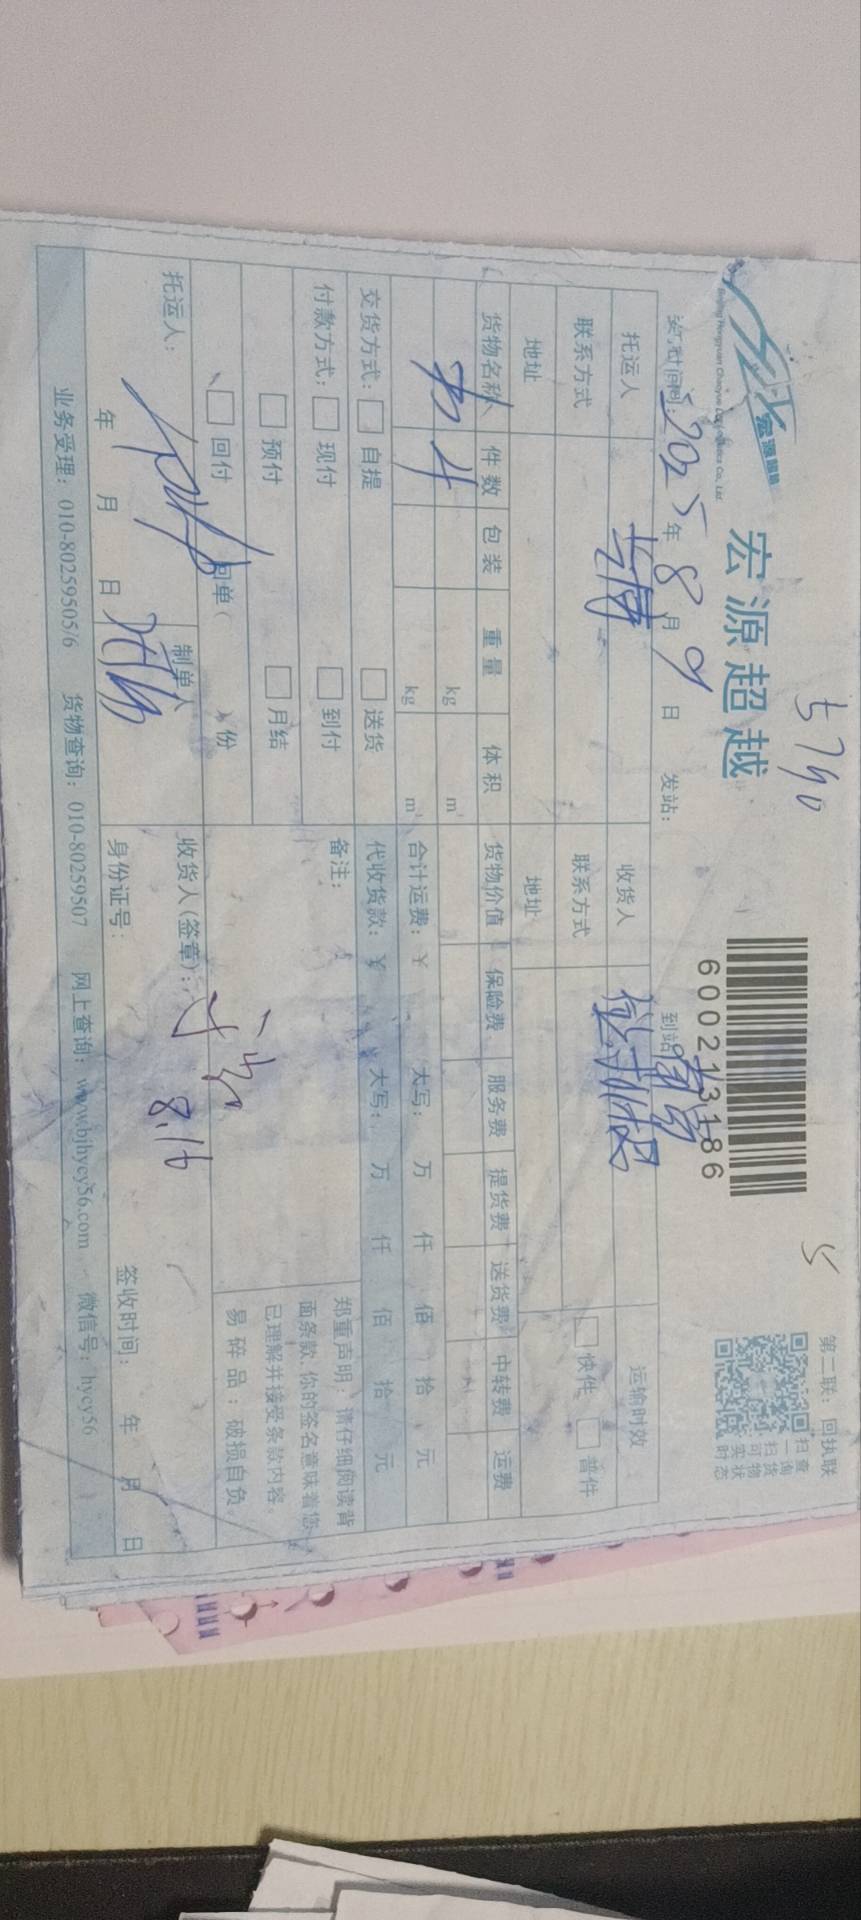 5790
第二联：回执联
宏源国际
宏源超越
600213186
扫一扫
查询货物实时状态
委托时间：2025年8月9日 发站： 到站：
托运人 收货人 运输时效
联系方式 联系方式 快件 普件
地址 地址
货物名称 件数 包装 重量 体积 货物价值 保险费 服务费 提货费 送货费 中转费 运费
4 kg m³
kg m³ 合计运费：￥ 大写： 万 仟 佰 拾 元
交货方式： 自提 送货 代收货款：￥ 大写： 万 仟 佰 拾 元
付款方式： 现付 到付 备注：
预付 月结
回付 回单（ ）份
郑重声明：请仔细阅读背
面条款，你的签名意味着您
已理解并接受条款内容。
易碎品：破损自负。
托运人： 制单人 收货人(签章)： 8.16
年 月 日 身份证号： 签收时间： 年 月 日
业务受理：010-80259505/6 货物查询：010-80259507 网上查询：www.bjhycy56.com 微信号：hycy56